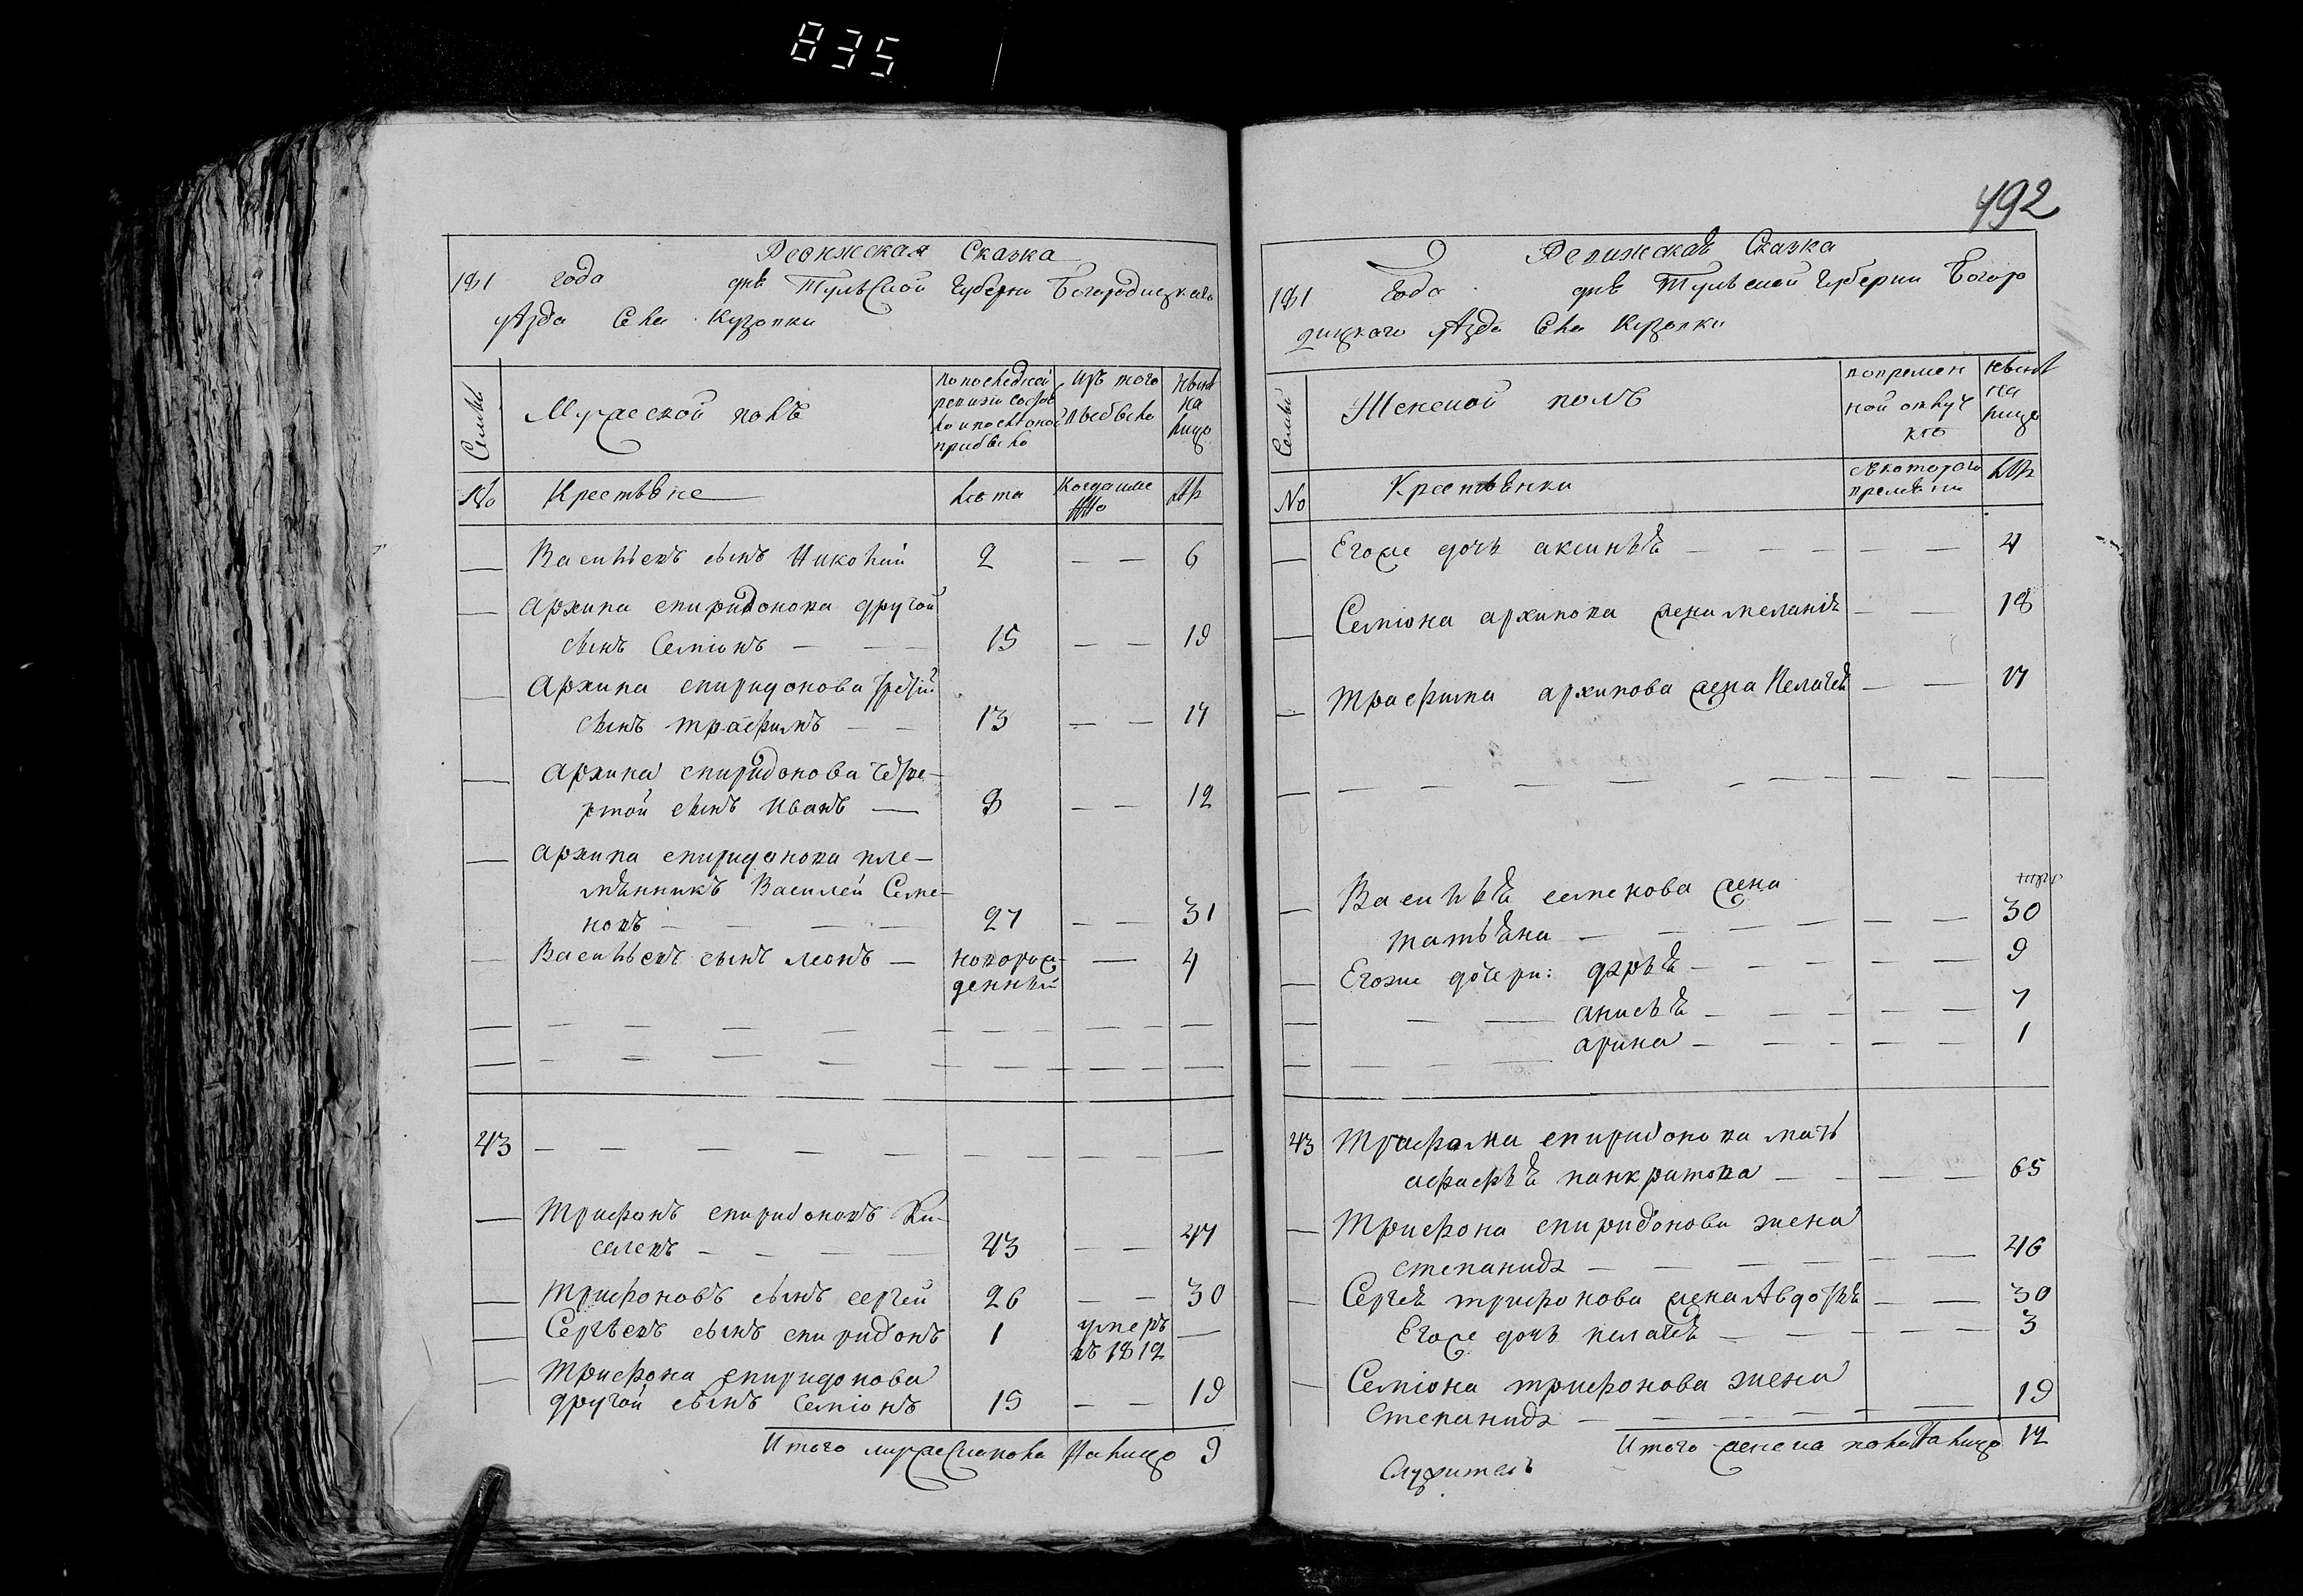 835
Ревижская Сказка
181 года дня Тульской Губерни Богородицкаго
уѣзда Села Кузовки
Семьи
Мужеской полъ
по последней
ревизи состоя
ло и после оной
прибыло
Изъ того
выбыло
ныне
на
лицо
№
Крестьяне
Лета
Когда име
нно
Лѣ
Васильевъ сынъ Николай 2 — — 6
Архипа спиридонова другой
сынъ Семіонъ — — 15 — — 19
Архипа спиридонова третій
сынъ трафимъ — — 13 — — 17
Архипа спиридонова четве-
ртой сынъ Иванъ — 8 — — 12
Архипа спиридонова пле-
мѣнникъ Василей Семе-
новъ — — — 27 — — 31
Васильевъ сынъ леонъ — новорож-
денный — 4
43
Трифонъ спиридоновъ Ки-
селевъ — — — 43 — — 47
Трифоновъ сынъ сергей 26 — — 30
Сергѣевъ сынъ спиридонъ 1 умеръ —
въ 1812
Трифона спиридонова
другой сынъ Семіонъ 15 — — 19
Итого мужеска пола На лицо 9
492
Ревижская Сказка
181 Года дня Тульской Губерни Богоро
дицкаго уѣзда Села Кузовки
Семьи
Женской полъ
во времен
ной отлуч
ке
ныне
на
лицо
№
Крестьянки
съ котораго
времѣни
Лѣ
Егоже дочь аксинья — — — — — 4
Семіона архипова жена меланья — — 18
Трафима архипова жена Пелагея — — 17
Василья семенова жена
татьяна — — — — — — 30
Егоже дочери: дарья — — — — — 9
анисья — — — — — 7
арина — — — — — 1
43 Трифона спиридонова мать
афафья панкратова — — — — 65
Трифона спиридонова жена
степанида — — — — — — 46
Сергея трифонова жена Авдотья — — 30
Егоже дочь пелагея — — — — — 3
Семіона трифонова жена
Степанида — — — — — — 19
Итого женска пола На лицо 12
Служитель